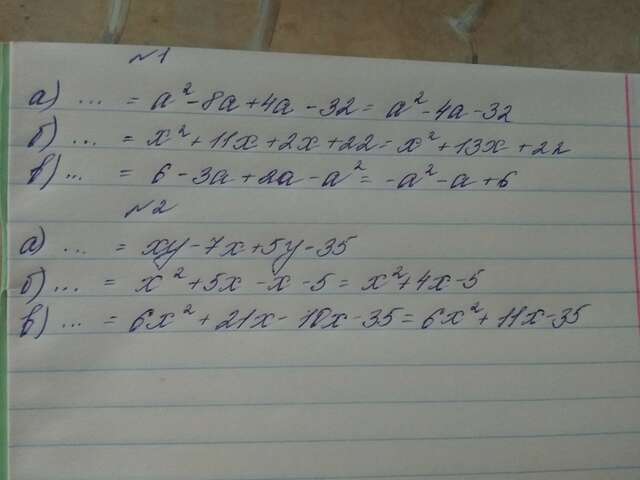 №1
а) ... = a² - 8a + 4a - 32 = a² - 4a - 32
б) ... = x² + 11x + 2x + 22 = x² + 13x + 22
в) ... = 6 - 3a + 2a - a² = -a² - a + 6
№2
а) ... = xy - 7x + 5y - 35
б) ... = x² + 5x - x - 5 = x² + 4x - 5
в) ... = 6x² + 21x - 10x - 35 = 6x² + 11x - 35